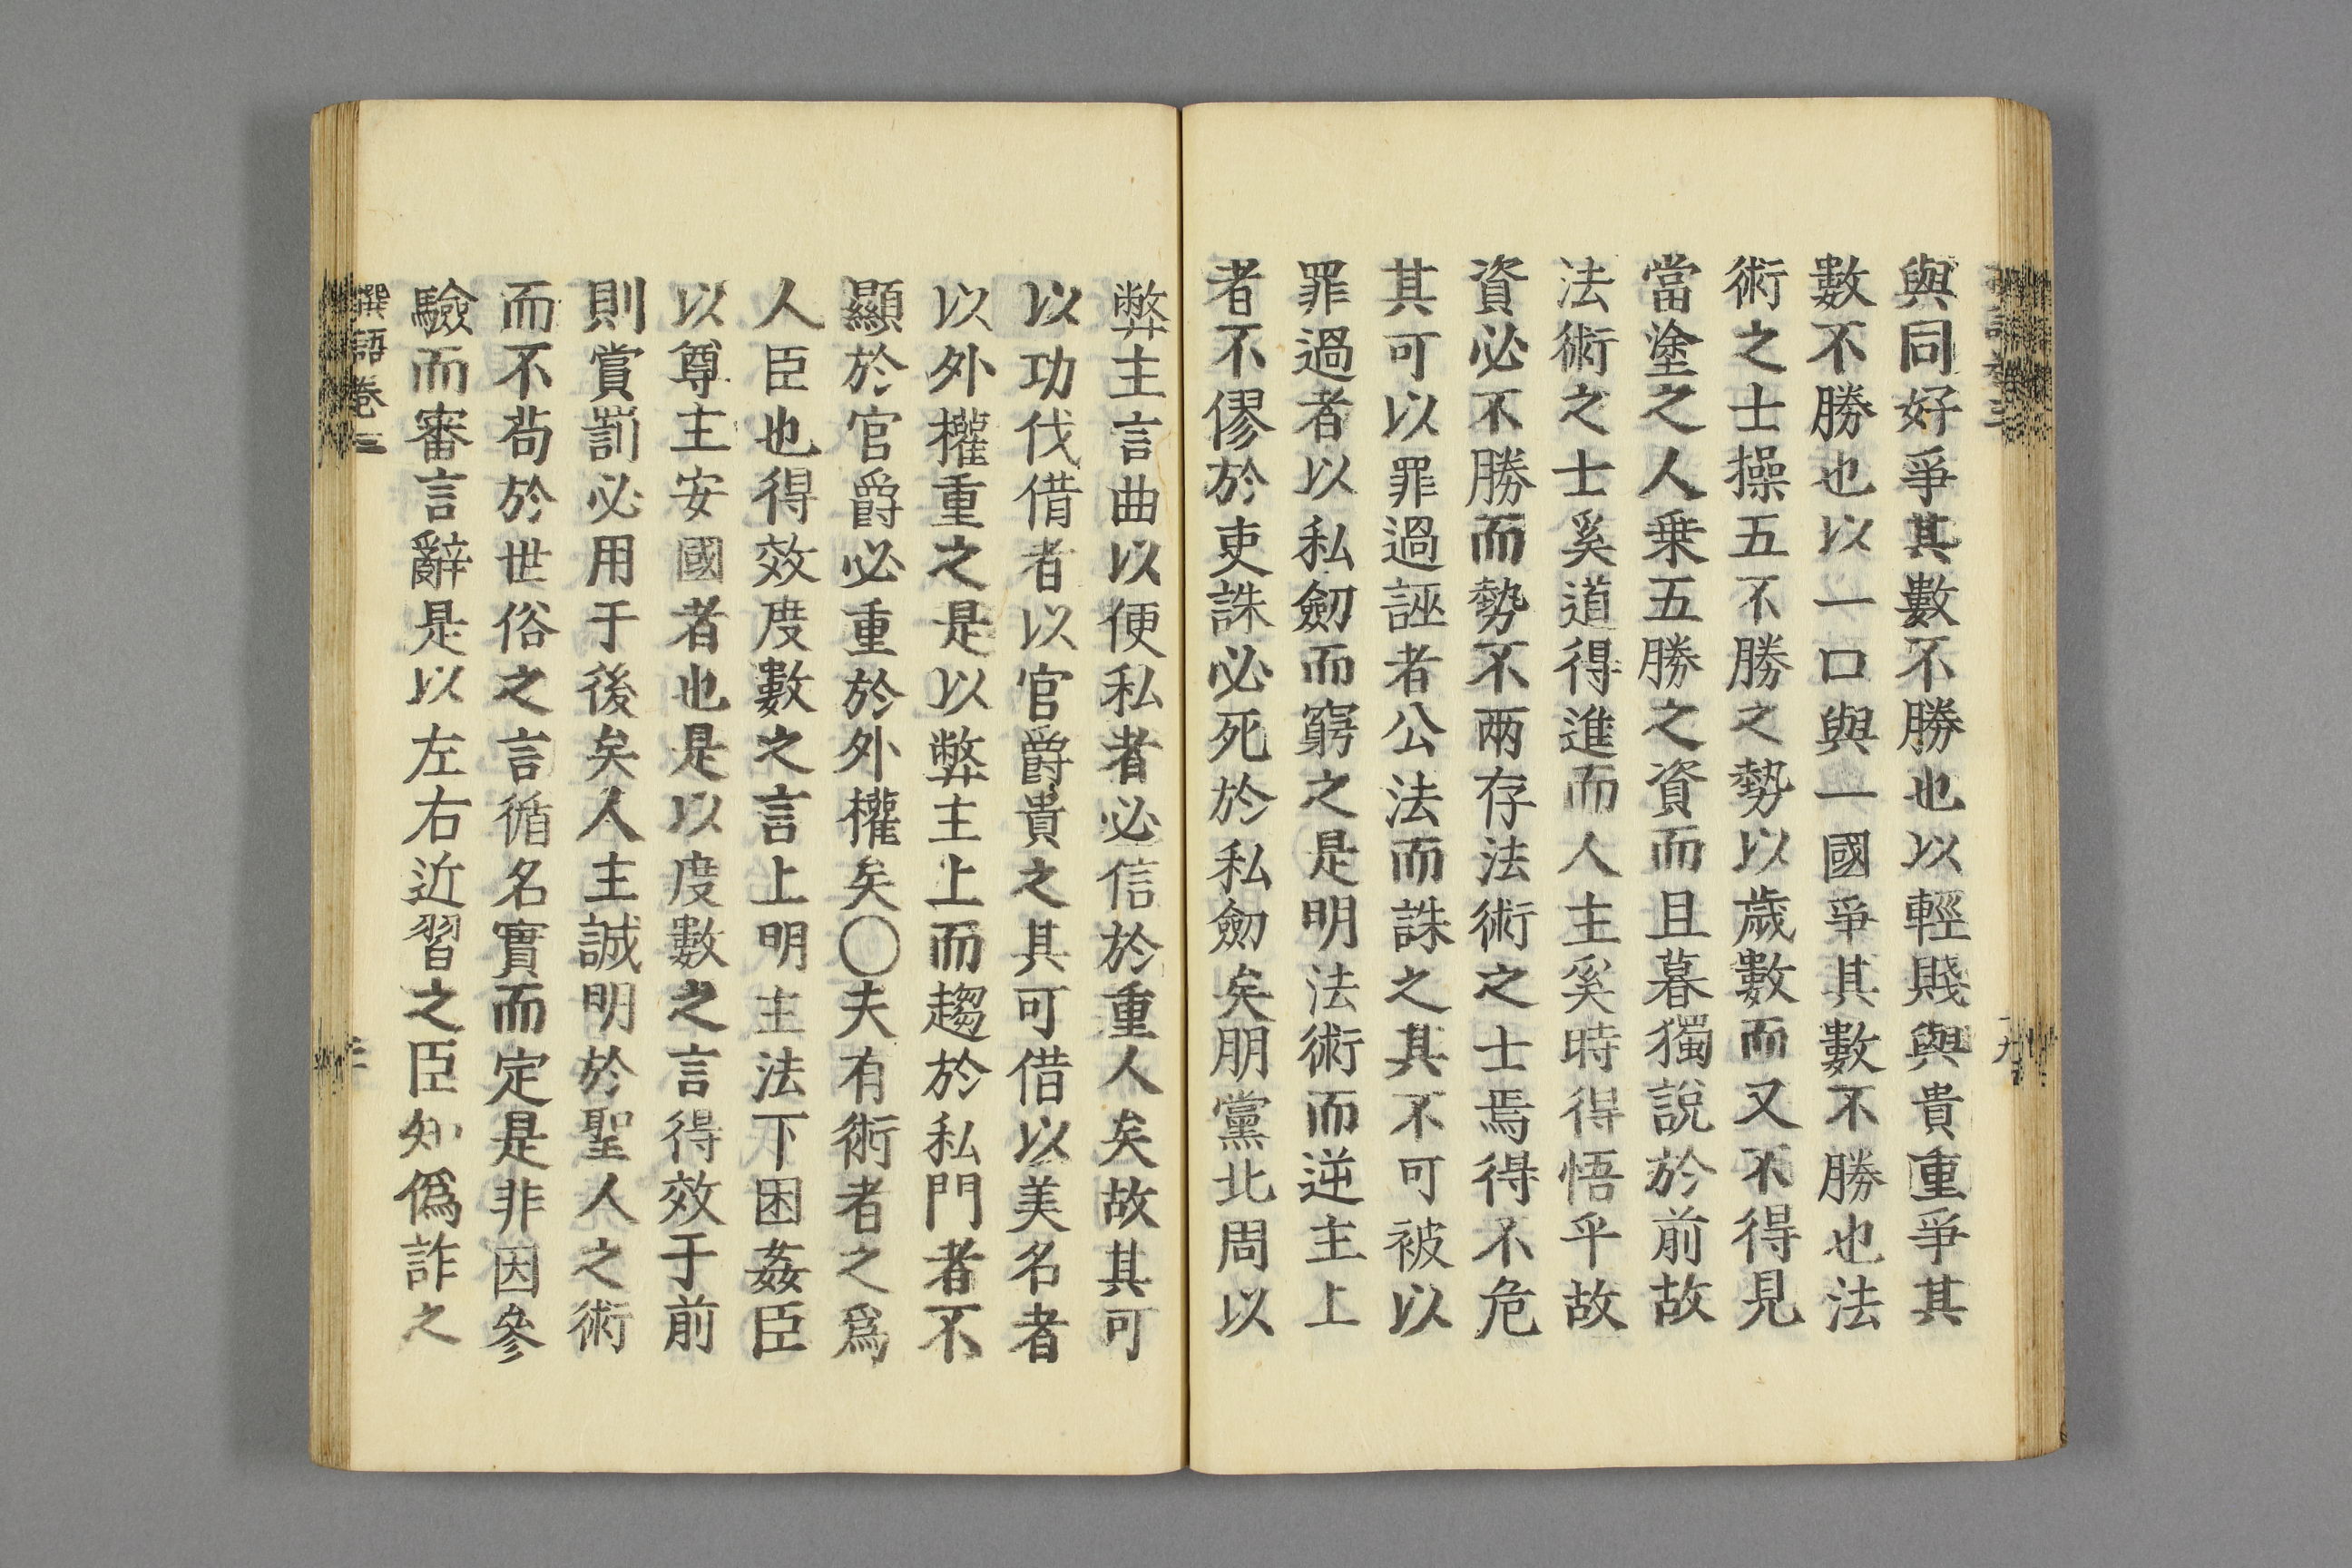 與同好爭其數不勝也以輕賤與貴重爭其
數不勝也以一口與一國爭其數不勝也法
術之士操五不勝之勢以歲數而又不得見
當塗之人乗五勝之資而且暮獨說於前故
法術之士奚道得進而人主奚時得悟乎故
資必不勝而勢不兩存法術之士焉得不危
其可以罪過誣者公法而誅之其不可被以
罪過者以私劒而窮之是明法術而逆主上
者不僇於吏誅必死於私劒矣朋黨北周以
弊主言曲以便私者必信於重人矣故其可
以功伐借者以官爵貴之其可借以美名者
以外權重之是以弊主上而趨於私門者不
顯於官爵必重於外權矣〇夫有術者之爲
人臣也得效度數之言上明主法下困姦臣
以尊主安國者也是以度數之言得效于前
則賞罰必用于後矣人主誠明於聖人之術
而不苟於世俗之言循名實而定是非因參
驗而審言辭是以左右近習之臣知僞詐之
撰語卷三